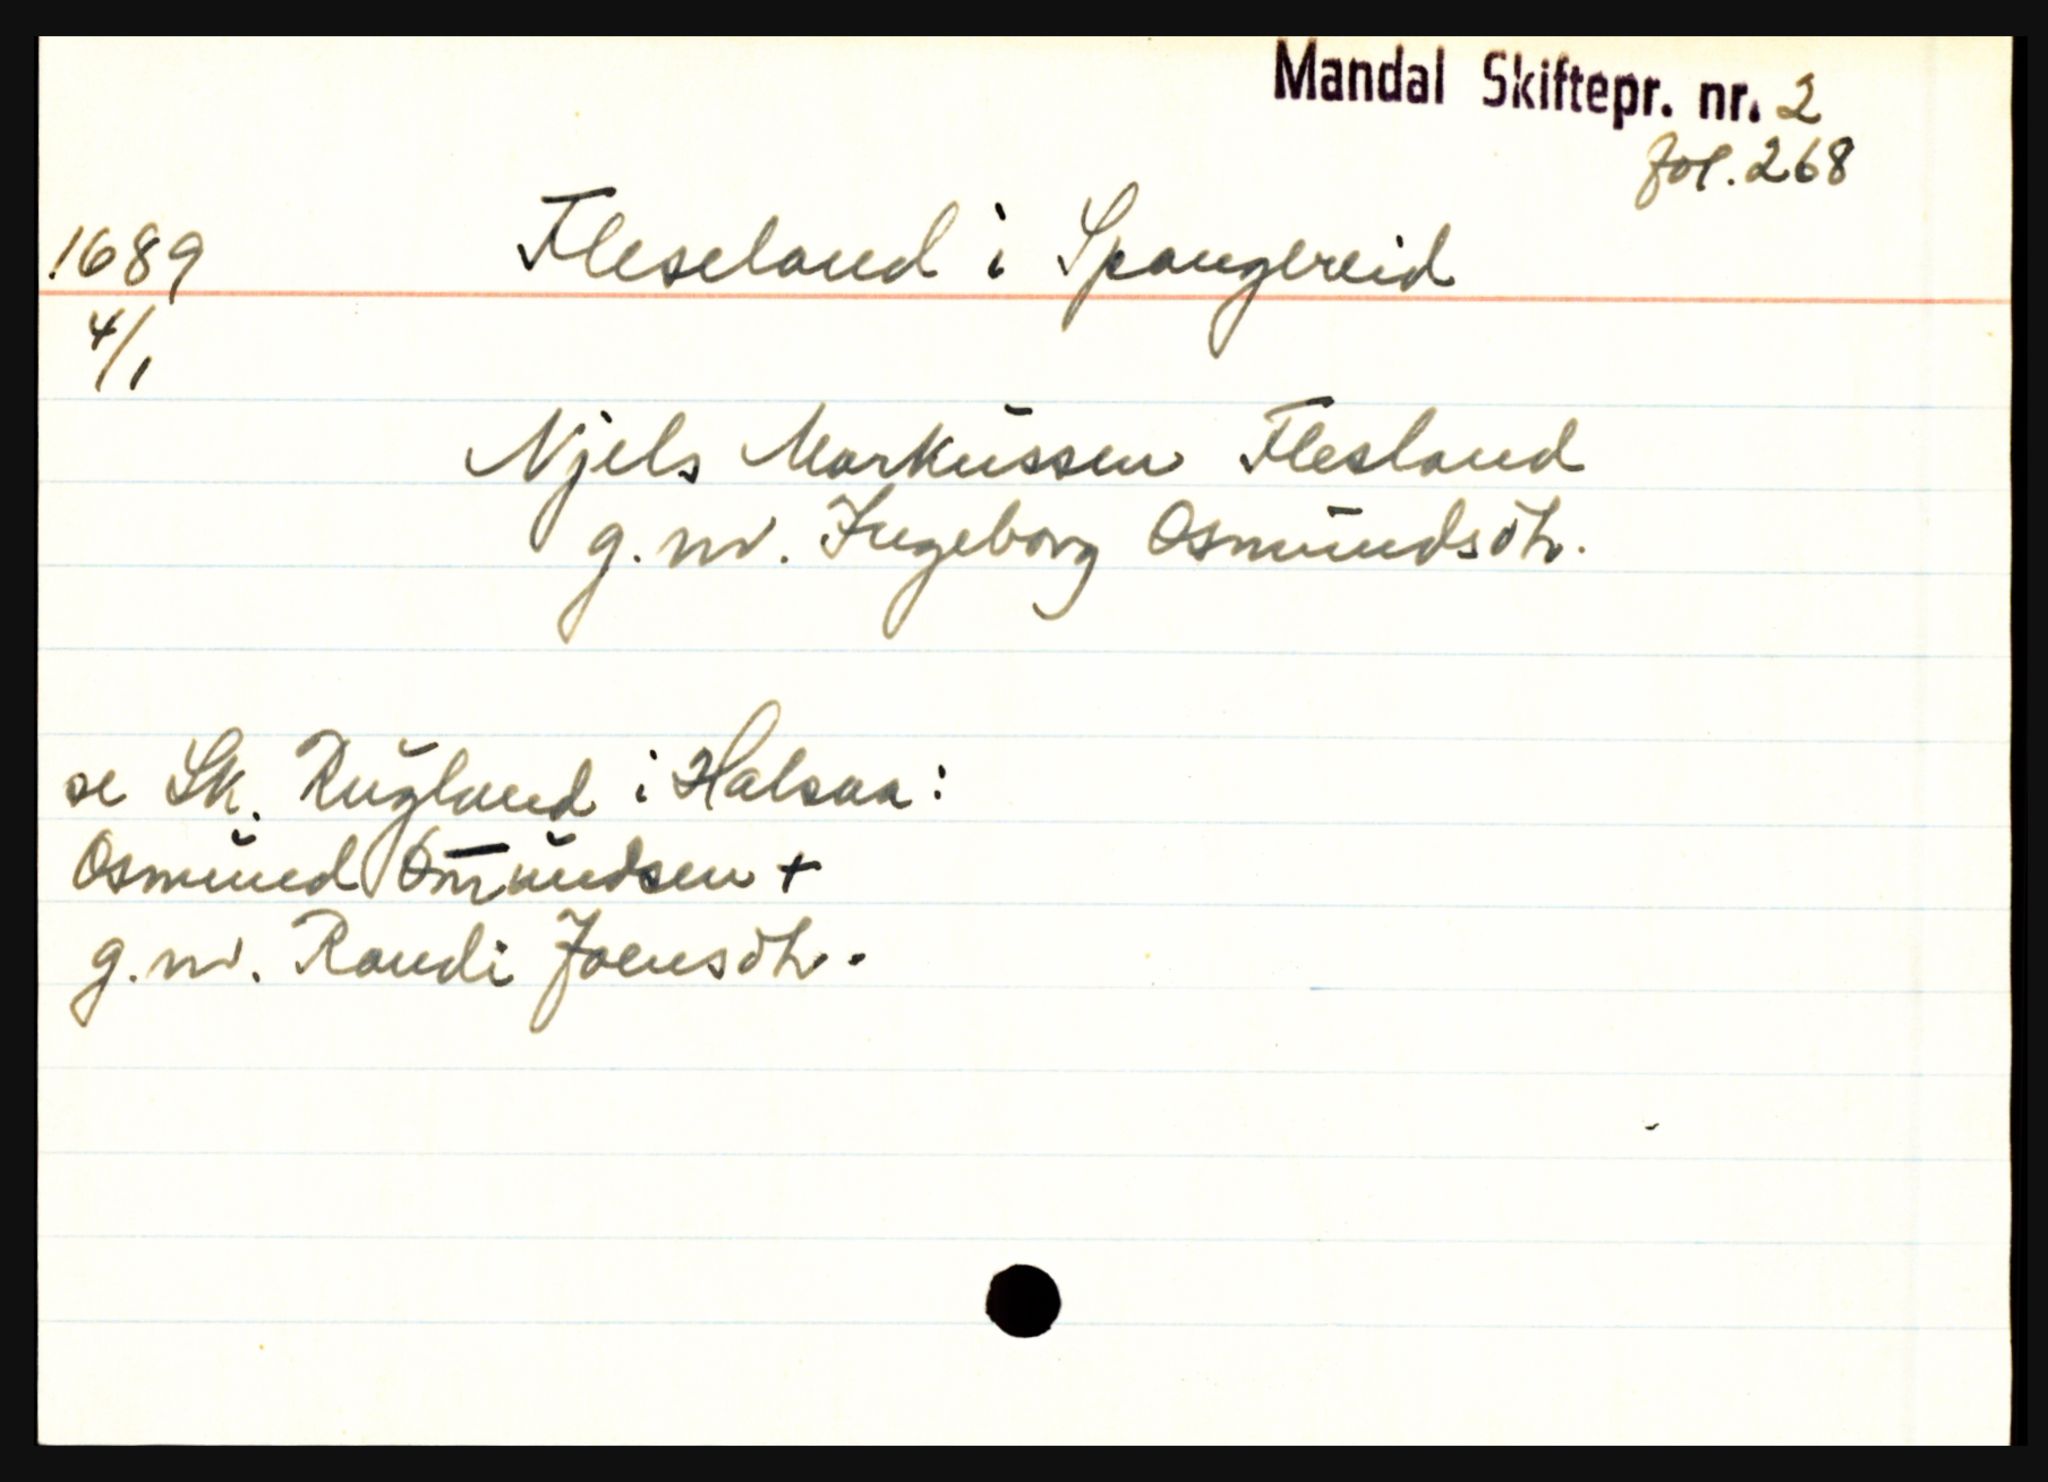 Mandal Skiftepr. nr. 2
fol. 268
1689 Fleseland i Spangereid
4/1
Njels Markussen Flesland
g. m. Ingeborg Osmundsdtr.
se Sk. Rugland i Halsaa:
Osmund Omundsen +
g. m. Randi Joensdtr.